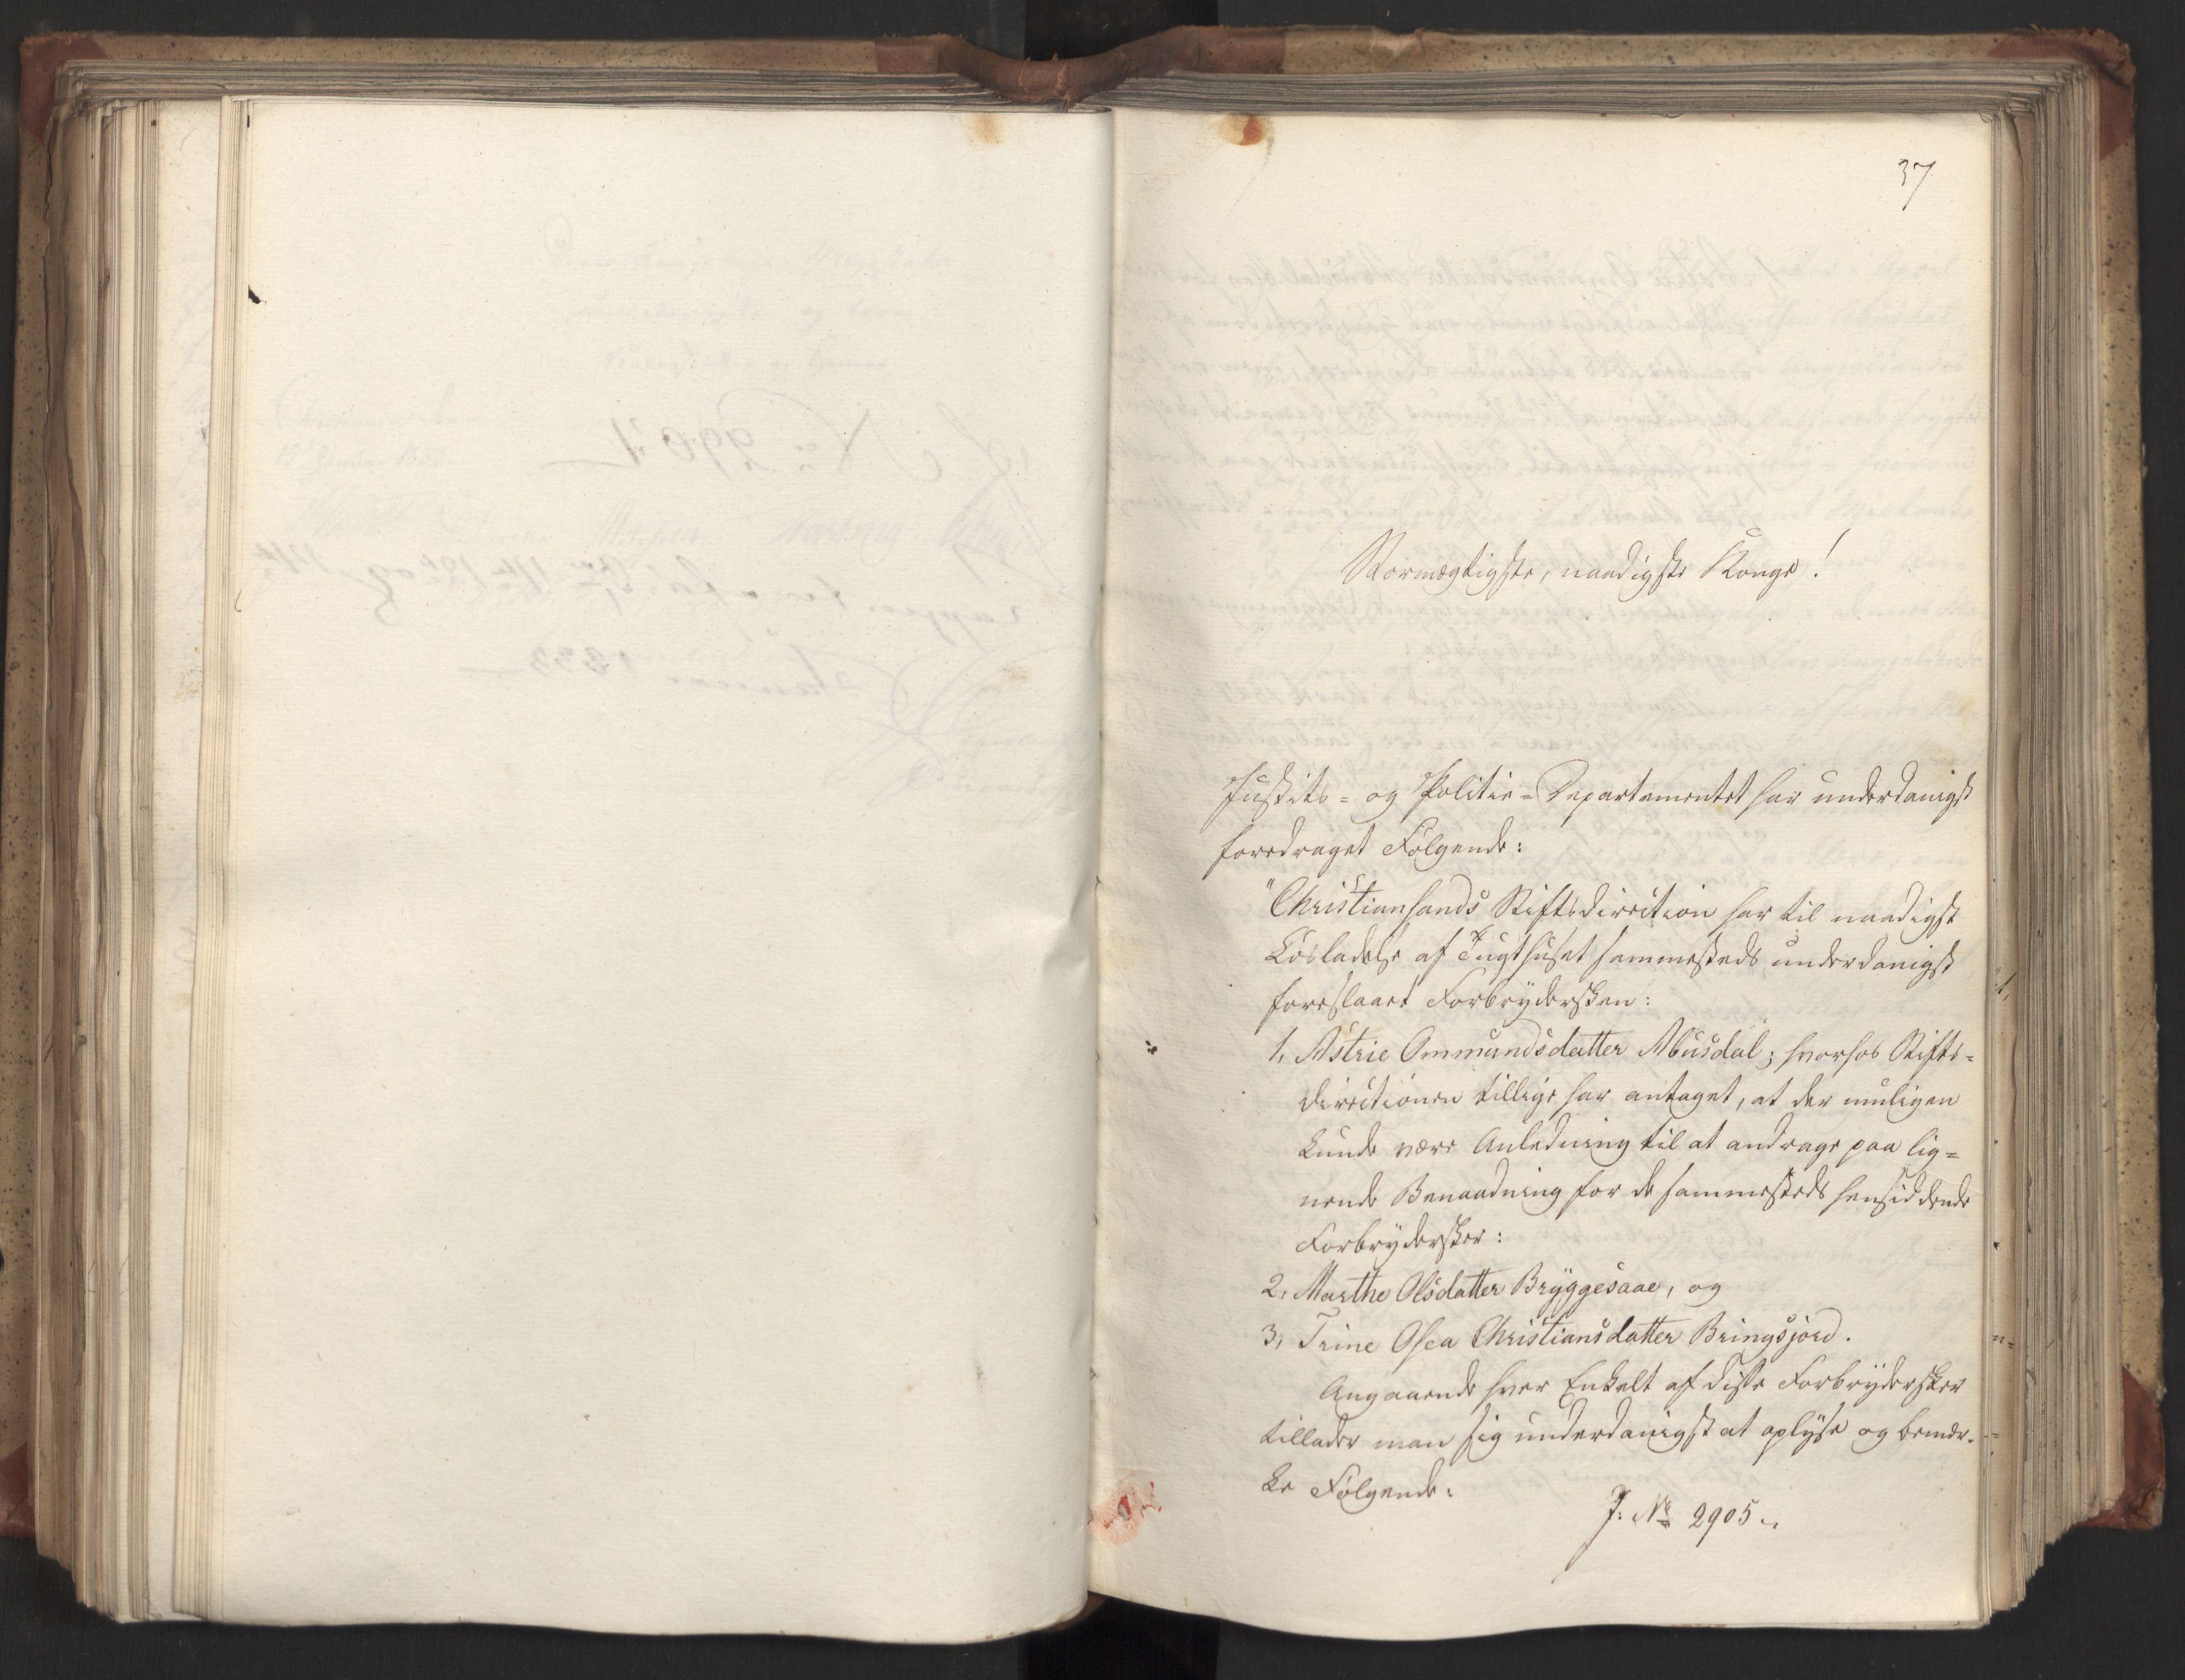 37
Stormægtigste, naadigste Konge!
Justits- og Politie-Departementet har underdanigst
foredraget Følgende:
"Christiansands Stiftsdirection har til naadigst
Løsladelse af Tugthuset sammesteds underdanigst
foreslaaet Forbrydersken:
1, Astrie Ommundsdatter Abusdal; hvorhos Stifts-
directionen tillige har antaget, at der muligen
kunde være Anledning til at andrage paa lig-
nende Benaadning for de sammesteds hensiddende
Forbrydersker:
2, Marthe Olsdatter Bryggesaae, og
3, Trine Osea Christiansdatter Bringsjord.
Angaaende hver Enkelt af disse Forbrydersker
tillader man sig underdanigst at oplyse og bemær-
ke Følgende:
J: No 2905